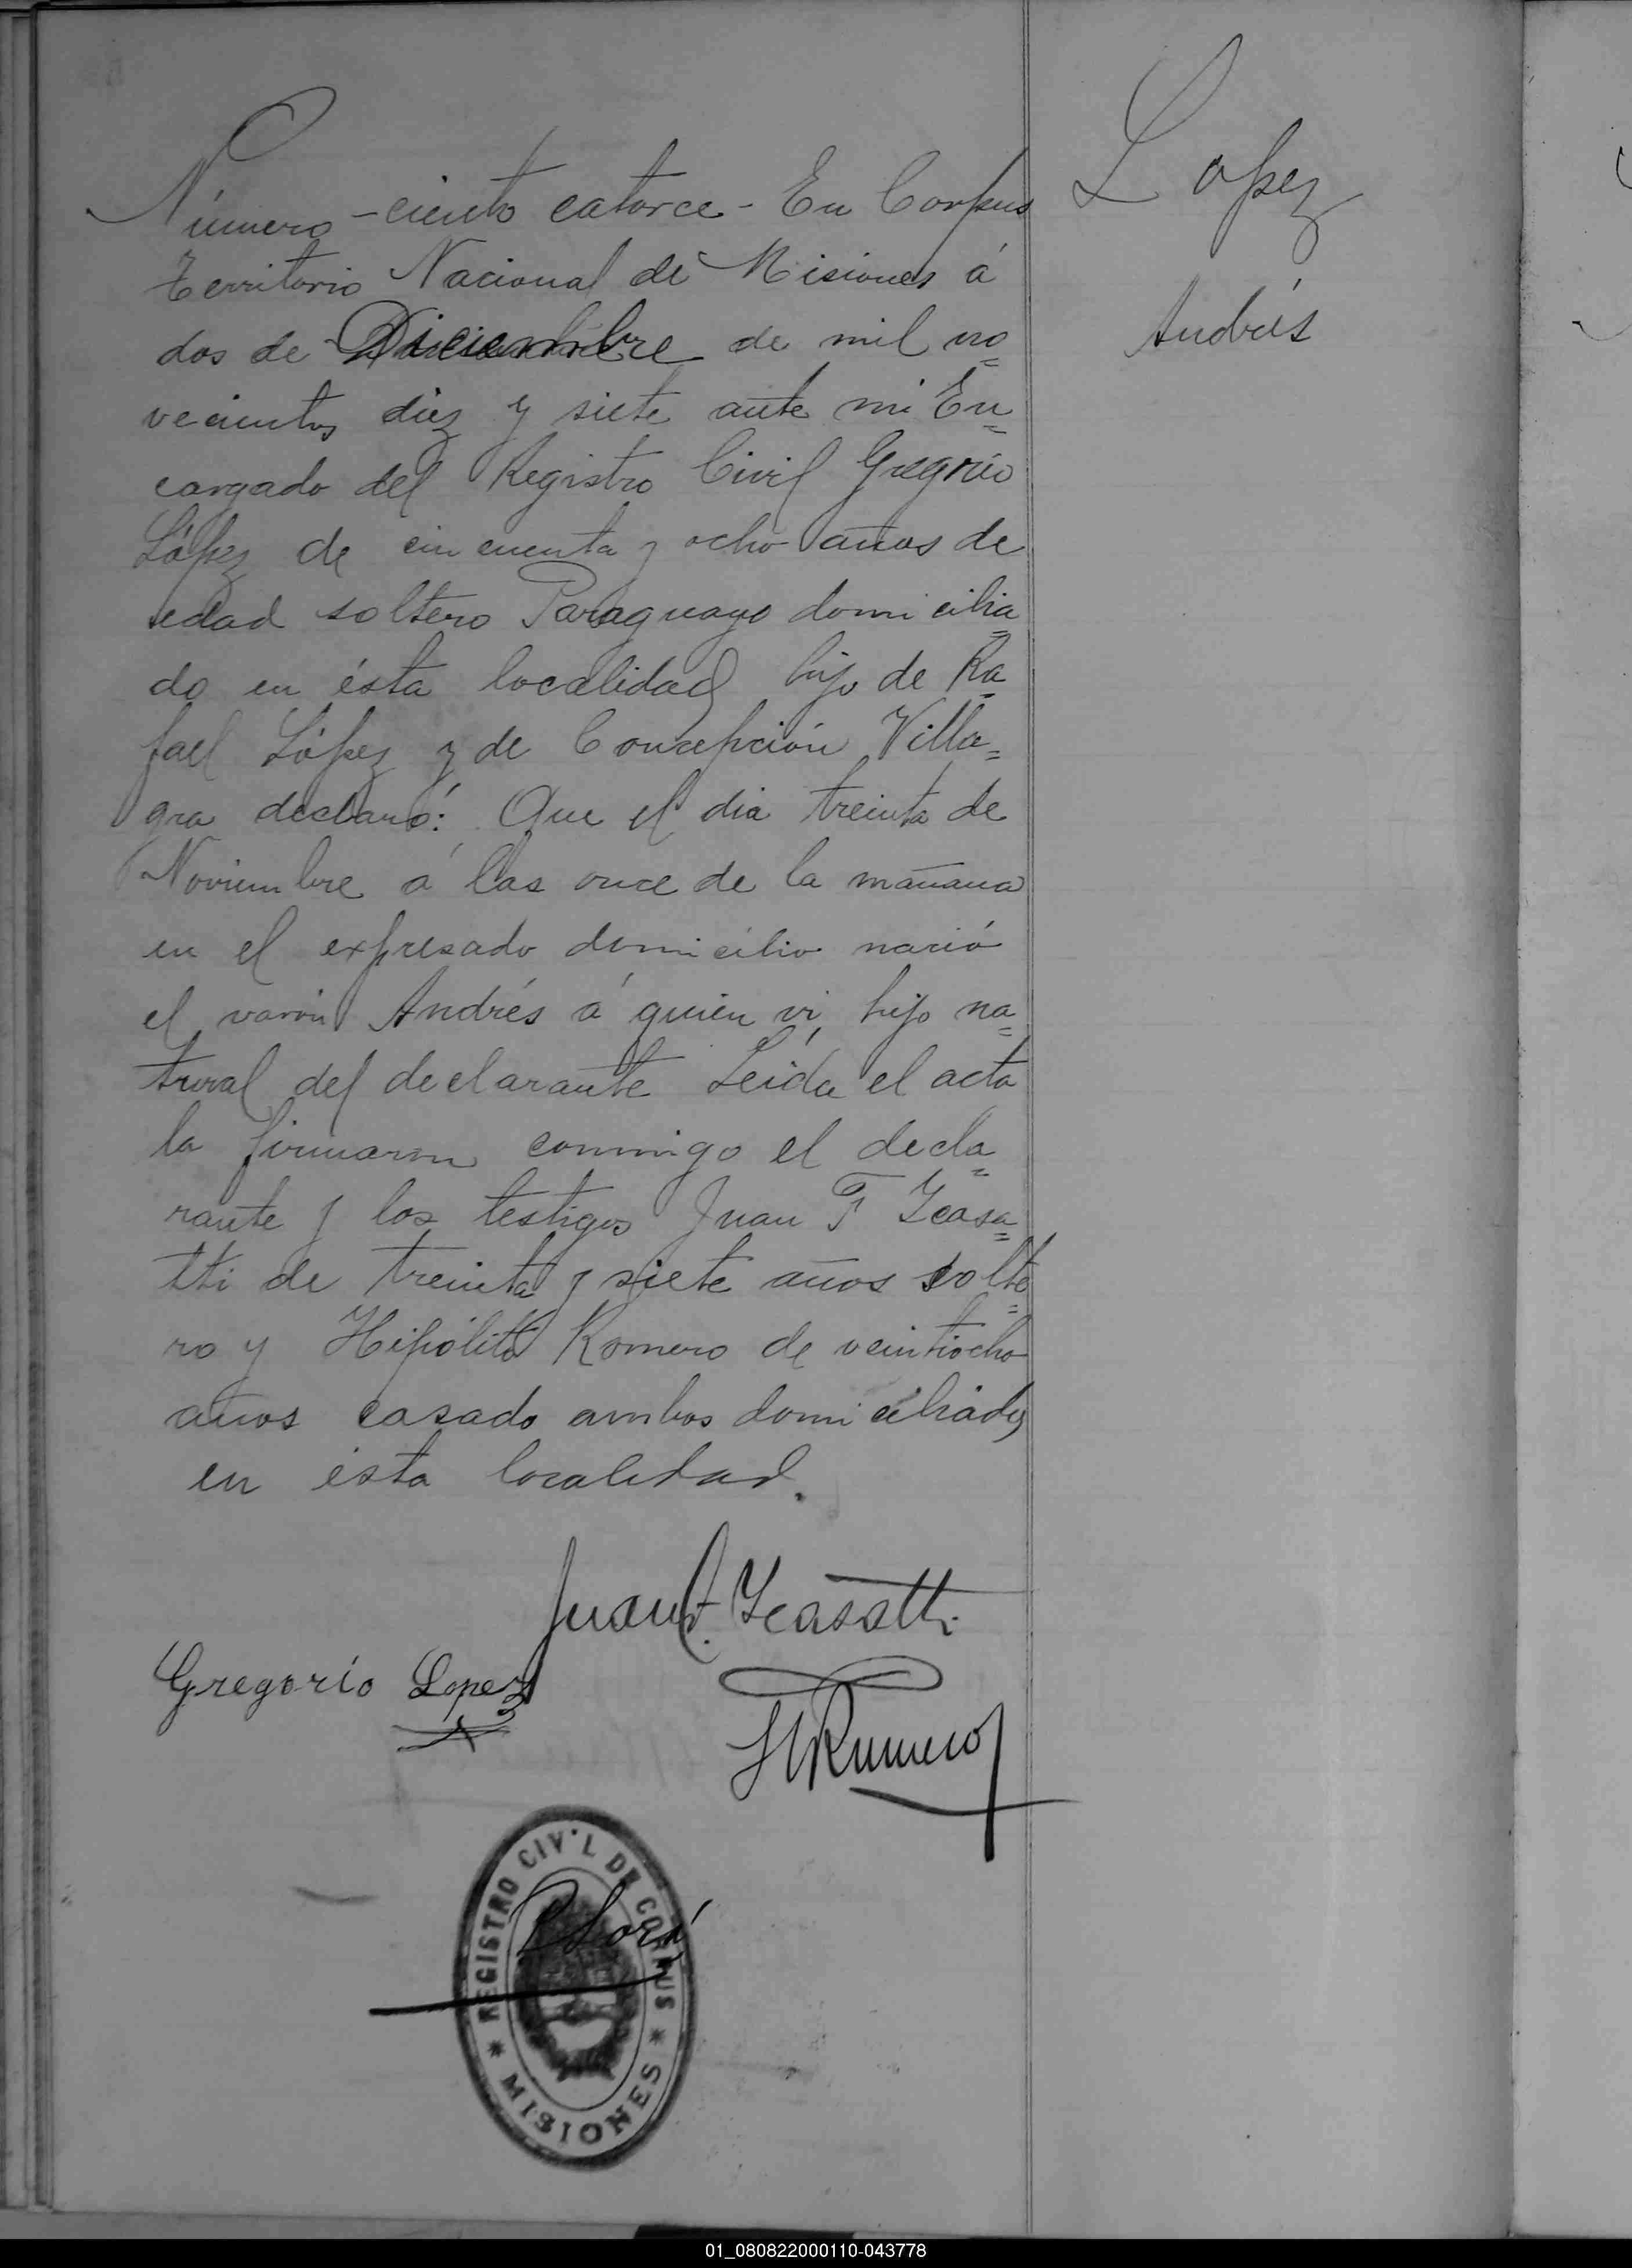 Número - ciento catorce - En Corpus
Territorio Nacional de Misiones á
dos de Diciembre de mil no=
vecientos diez y siete ante mi En=
cargado del Registro Civil Gregorio
López de cincuenta y ocho años de
edad soltero Paraguayo domicilia=
do en ésta localidad hijo de Ra=
fael López y de Concepción Villa=
gra declaró: Que el dia treinta de
Noviembre á las once de la mañana
en el expresado domicilio nació
el varón Andrés á quien vi, hijo na=
tural del declarante Leida el acta
la firmaron conmigo el decla=
rante y los testigos Juan F Icasa=
tti de treinta y siete años solte=
ro y Hipólito Romero de veintiocho
años casado ambos domiciliados
en ésta localidad.
Lopez
Andrés
Juan F. Icasatti
Gregorio Lopez
H Romero
REGISTRO CIVIL DE CORPUS
* MISIONES *
01_080822000110-043778